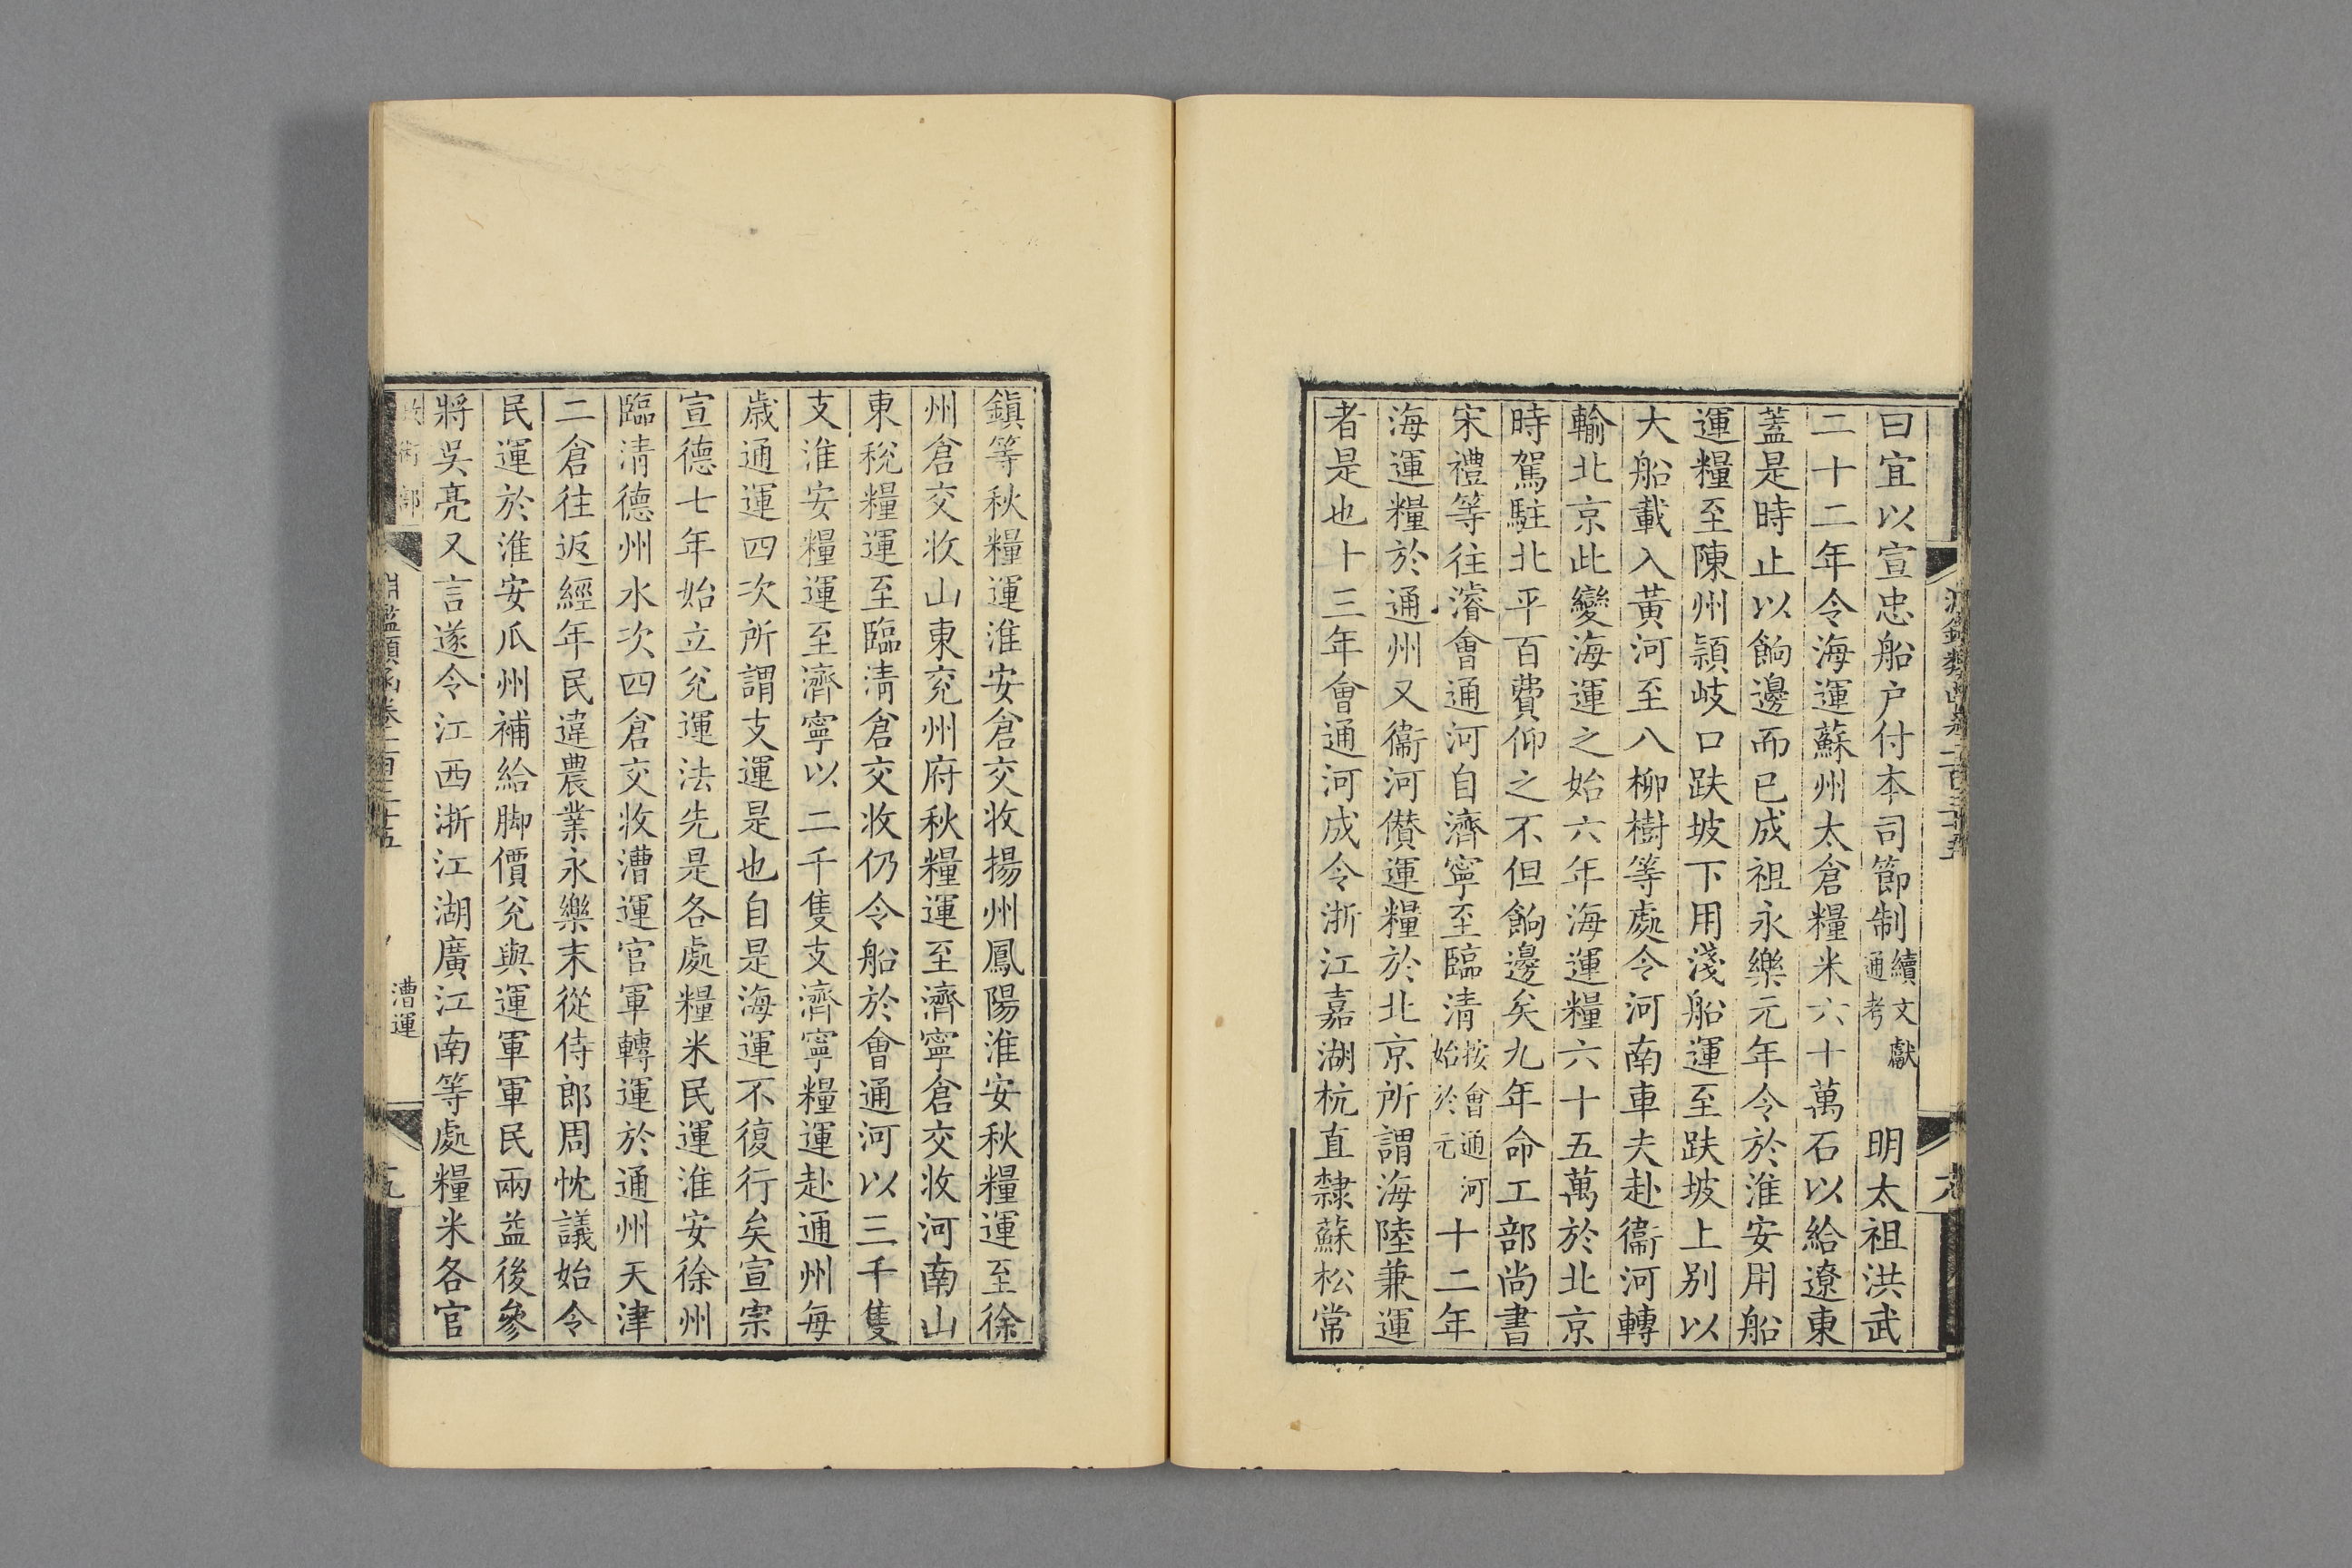 曰宜以宣忠船户付本司節制續文獻通考　明太祖洪武
二十二年令海運蘇州太倉糧米六十萬石以給遼東
蓋是時止以餉邊而已成祖永樂元年令於淮安用船
運糧至陳州潁岐口跌坡下用淺船運至跌坡上別以
大船載入黃河至八柳樹等處令河南車夫赴衞河轉
輸北京此變海運之始六年海運糧六十五萬於北京
時駕駐北平百費仰之不但餉邊矣九年命工部尚書
宋禮等往濬會通河自濟寧至臨清按會通河始於元十二年
海運糧於通州又衞河儹運糧於北京所謂海陸兼運
者是也十三年會通河成令浙江嘉湖杭直隸蘇松常
鎮等秋糧運淮安倉交收揚州鳳陽淮安秋糧運至徐
州倉交收山東兗州府秋糧運至濟寧倉交收河南山
東稅糧運至臨清倉交收仍令船於會通河以三千隻
支淮安糧運至濟寧以二千隻支濟寧糧運赴通州每
歲通運四次所謂支運是也自是海運不復行矣宣宗
宣德七年始立兌運法先是各處糧米民運淮安徐州
臨清德州水次四倉交收漕運官軍轉運於通州天津
二倉往返經年民違農業永樂末從侍郎周忱議始令
民運於淮安瓜州補給脚價兌與運軍軍民兩益後參
將吳亮又言遂令江西浙江湖廣江南等處糧米各官
漕運